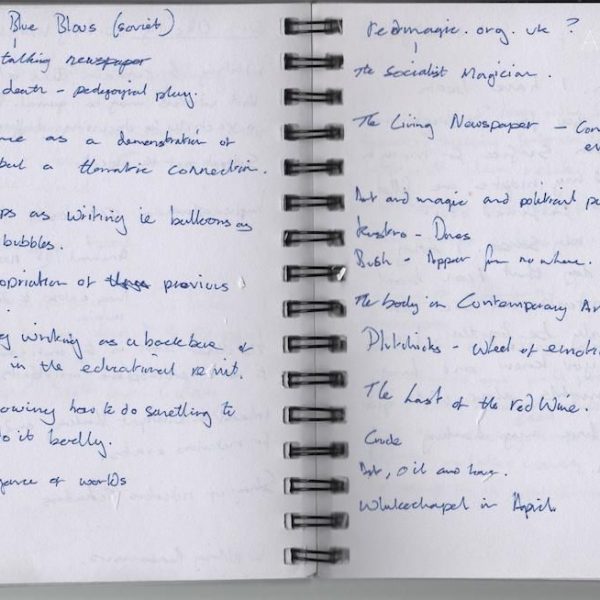 Blue Blous (soviet)
talking newspaper
death - pedagogical play.
nce as a demonstration of
but a thematic connection.
ps as writing ie balloons as
bubbles.
opriation of these previous
g working as a backbone of
in the educational remit.
owing how to do something to
o it badly.
gence of worlds
redmagic.org.uk ?
The Socialist Magician.
The Living Newspaper - Con
Art and magic and political p
Bush - Appear from nowhere.
The body in Contemporary Ar
Plutchicks - Wheel of emoti
The Last of the red Wine.
Crude
Art, oil and
Whitechapel in April.